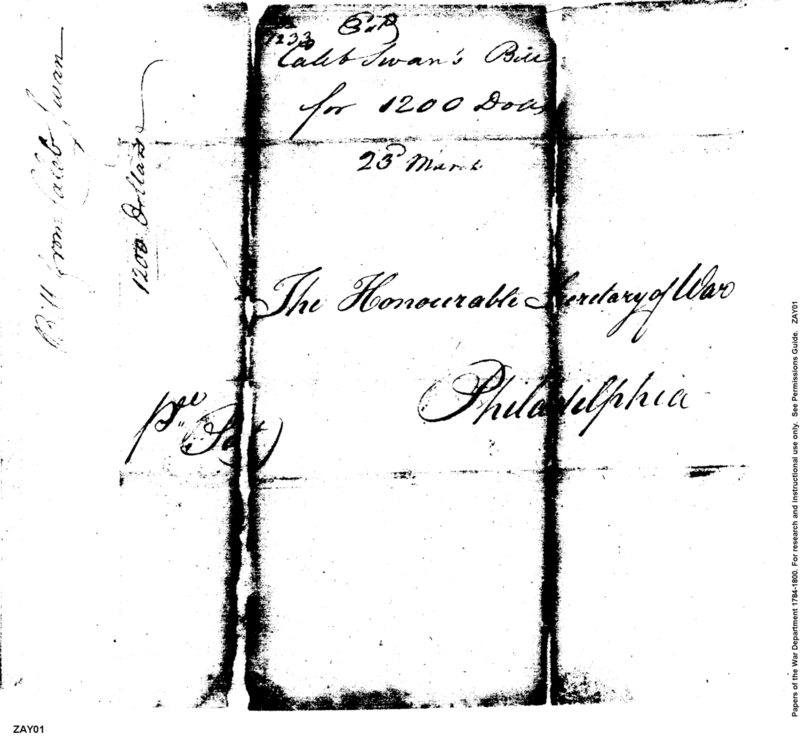 1233
Caleb Swan's Bill
for 1200 Dolls
23d March
Bill from Caleb Swan
1200 Dollars
The Honourable Secretary of War
Philadelphia
ZAY01
Papers of the War Department 1784-1800. For research and instructional use only. See Permissions Guide. ZAY01